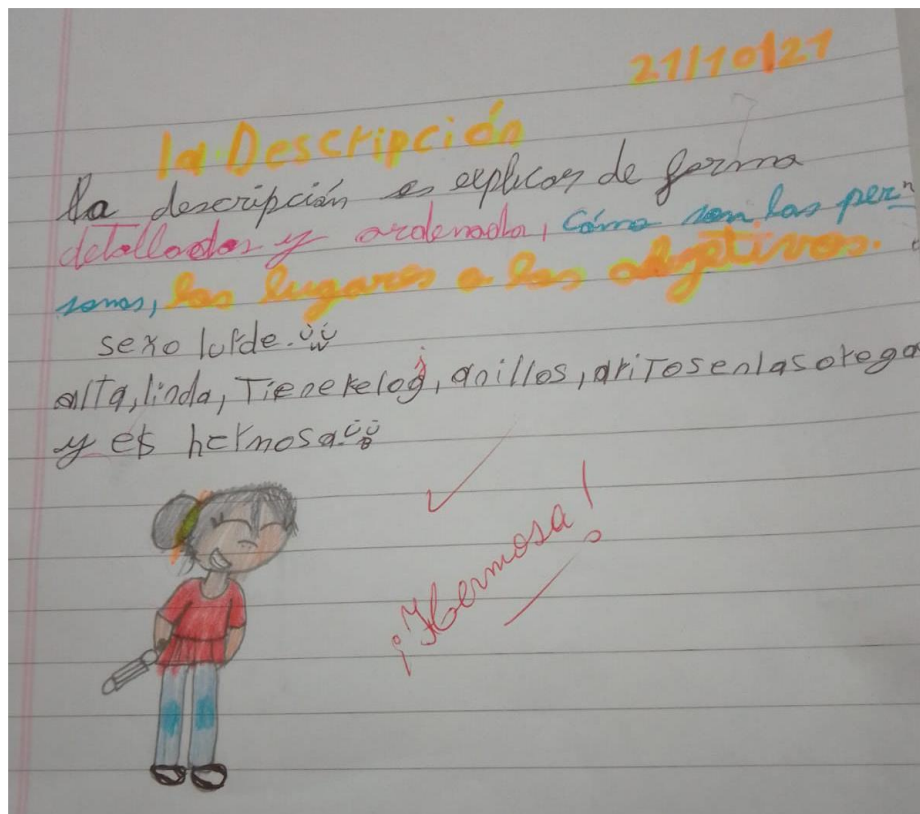 21/10/21
la Descripción
La descripción es explicar de forma
detallada y ordenada, cómo son las per
sonas, los lugares o los objetivos.
alta, linda, Tiene reloj, anillos, aritos en las orega
y es hermosa
¡Hermosa!